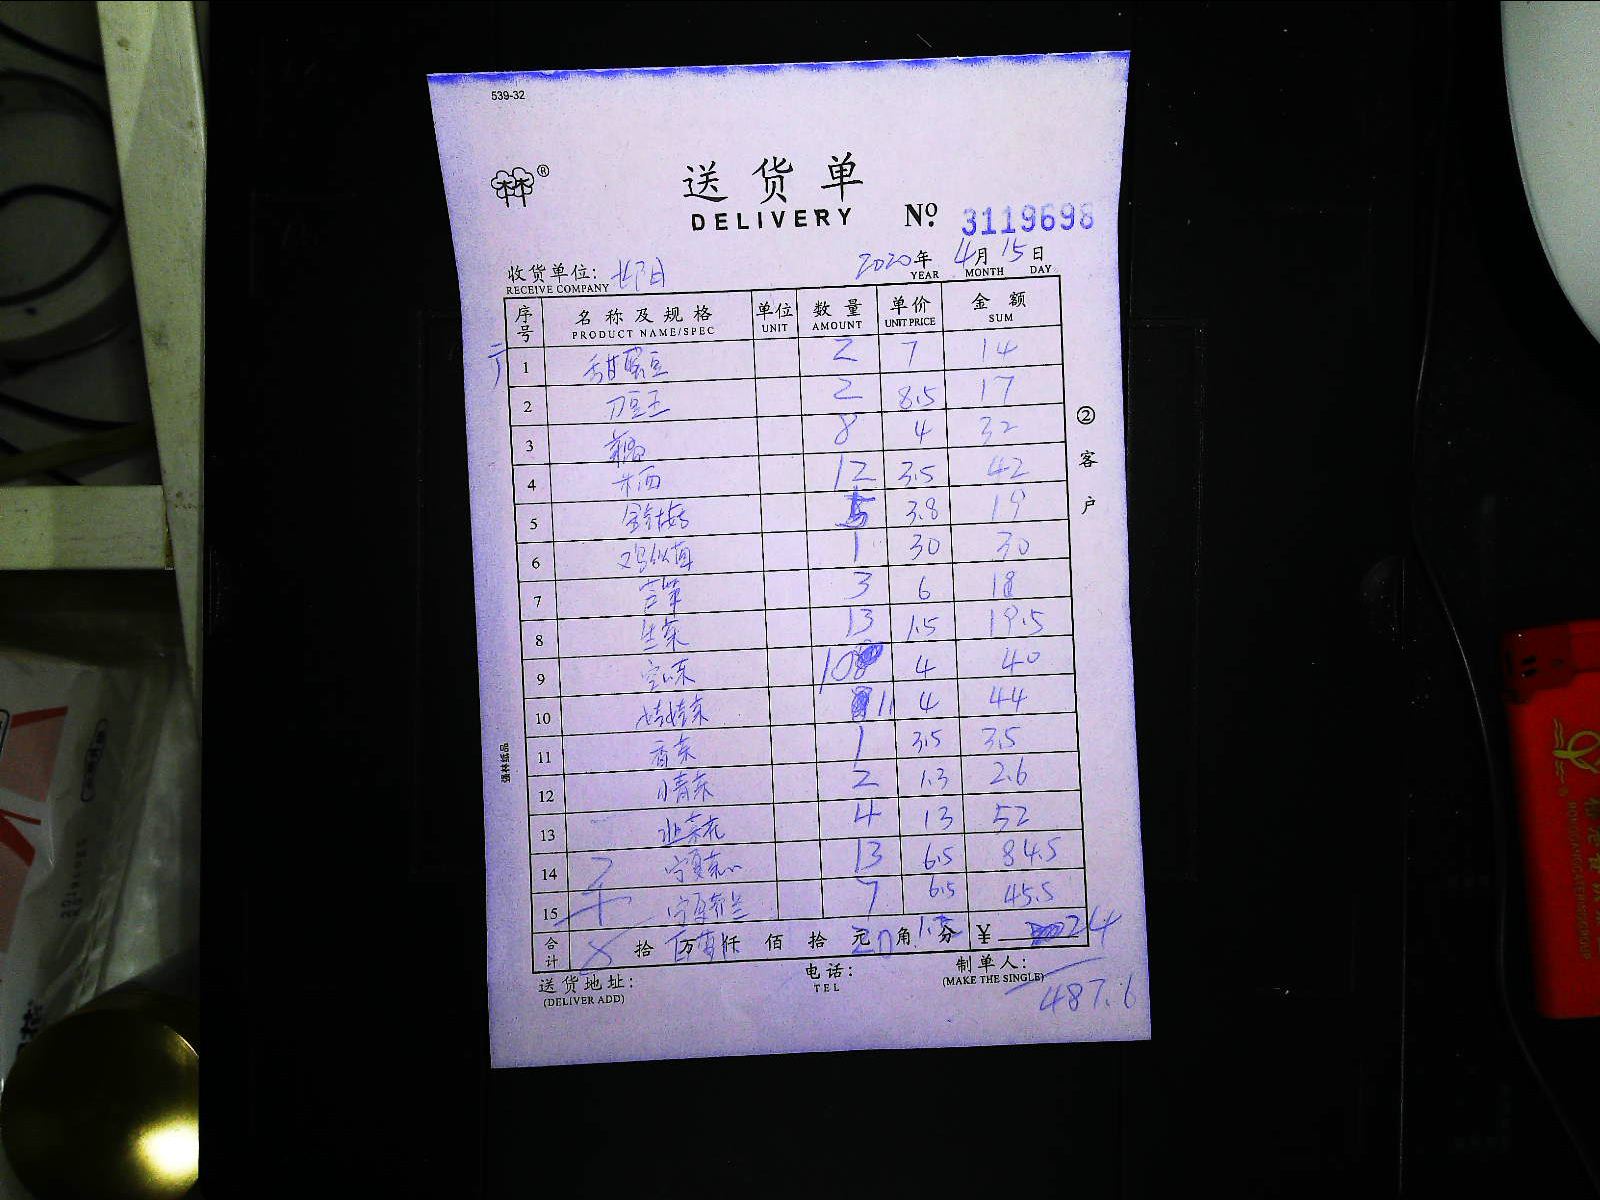 539-32
林®
送货单
DELIVERY No. 3119698
2020年 4月 15日
YEAR MONTH DAY
收货单位:
RECEIVE COMPANY
序号 名称及规格 单位 数量 单价 金额
PRODUCT NAME/SPEC UNIT AMOUNT UNIT PRICE SUM
1 甜蜜豆 2 7 14
2 刀豆王 2 8.5 17
3 8 4 32
4 12 3.5 42
5 金针菇 5 3.8 19
6 鸡枞菌 1 30 30
7 3 6 18
8 生菜 13 1.5 19.5
9 10 4 40
10 娃娃菜 11 4 44
11 香菜 1 3.5 3.5
12 小青菜 2 1.3 2.6
13 韭菜花 4 13 52
14 宁夏菜心 13 6.5 84.5
15 7 6.5 45.5
合计 拾 万 仟 佰 拾 元 20 角 分 ¥ 24
送货地址: 电话: 制单人:
(DELIVER ADD) TEL (MAKE THE SINGLE)
487.6
②客户
强林纸品